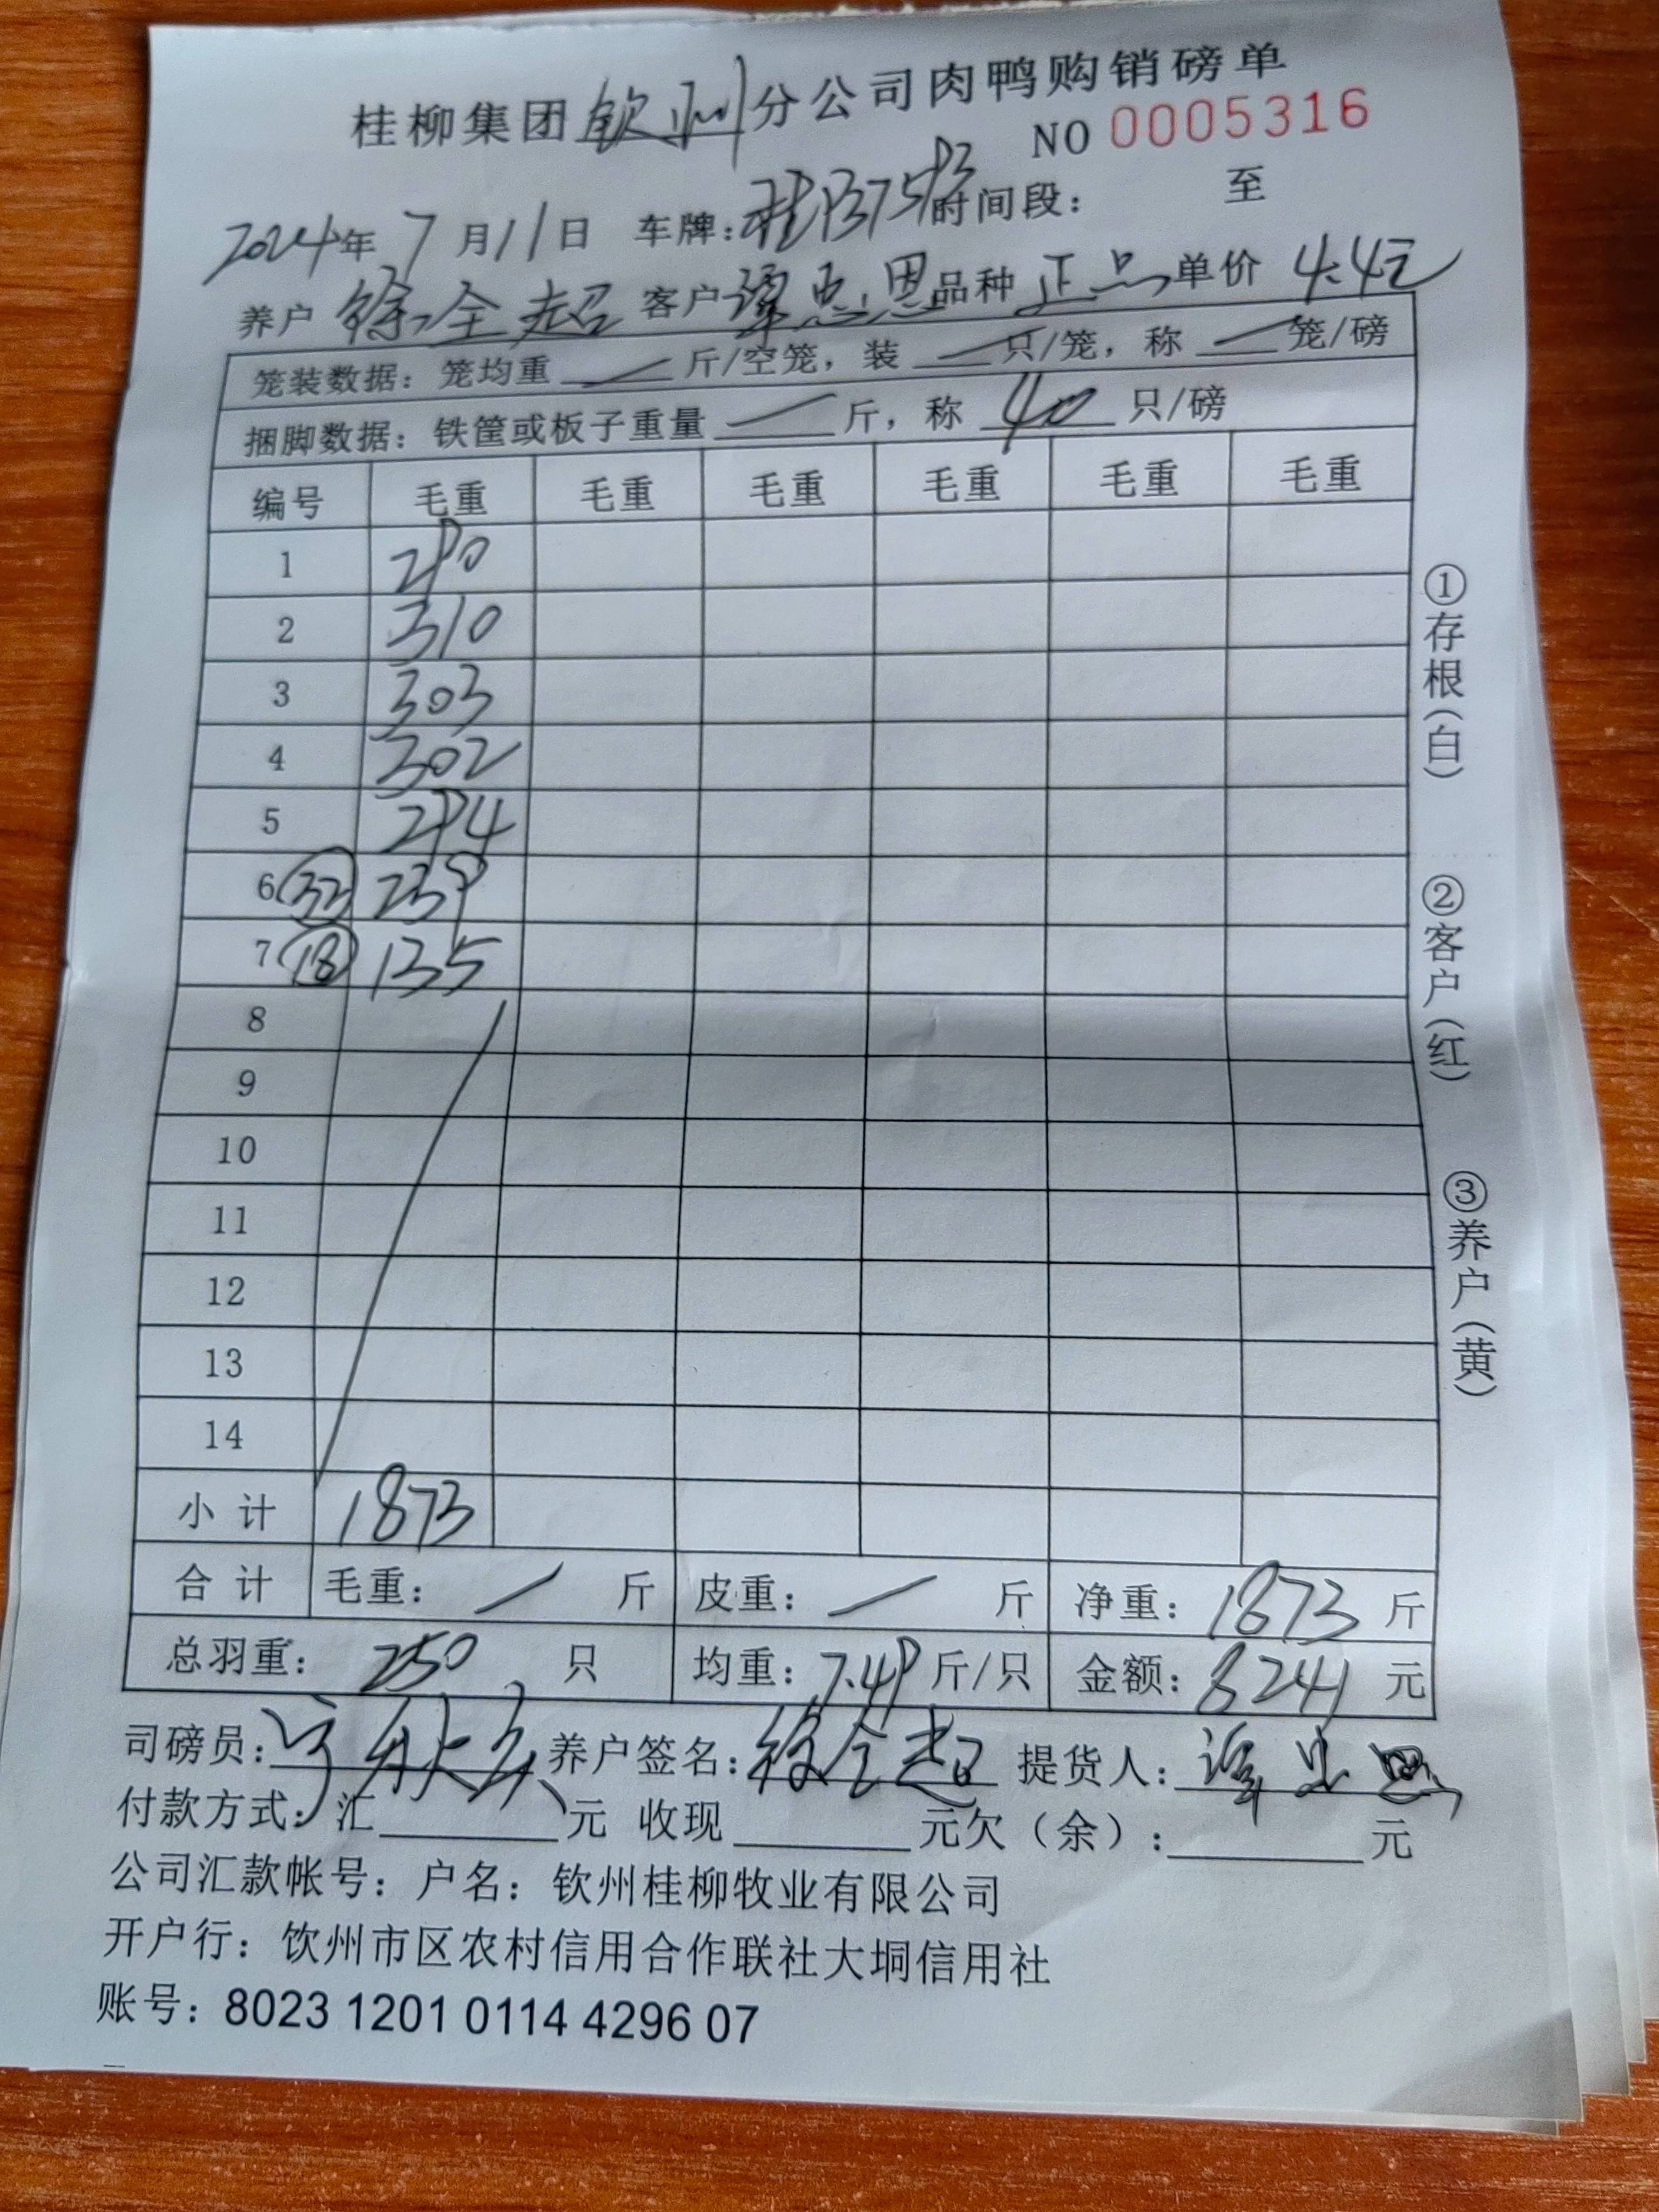 桂柳集团钦州分公司肉鸭购销磅单
NO 0005316
2024年 7 月 11 日 车牌: 时间段: 至
养户 徐全超 客户 谭忠恩 品种 正品 单价 4.4元
笼装数据: 笼均重 斤/空笼, 装 只/笼, 称 笼/磅
捆脚数据: 铁筐或板子重量 斤, 称 40 只/磅
编号 毛重 毛重 毛重 毛重 毛重 毛重
1 290
2 310
3 303
4 302
5 294
6 32 239
7 18 135
8
9
10
11
12
13
14
小计 1873
合计 毛重: 斤 皮重: 斤 净重: 1873 斤
总羽重: 250 只 均重: 7.49 斤/只 金额: 8241 元
司磅员: 养户签名: 徐全超 提货人: 谭忠恩
付款方式: 汇 元 收现 元欠(余): 元
公司汇款帐号: 户名: 钦州桂柳牧业有限公司
开户行: 饮州市区农村信用合作联社大垌信用社
账号: 8023 1201 0114 4296 07
①存根(白)
②客户(红)
③养户(黄)